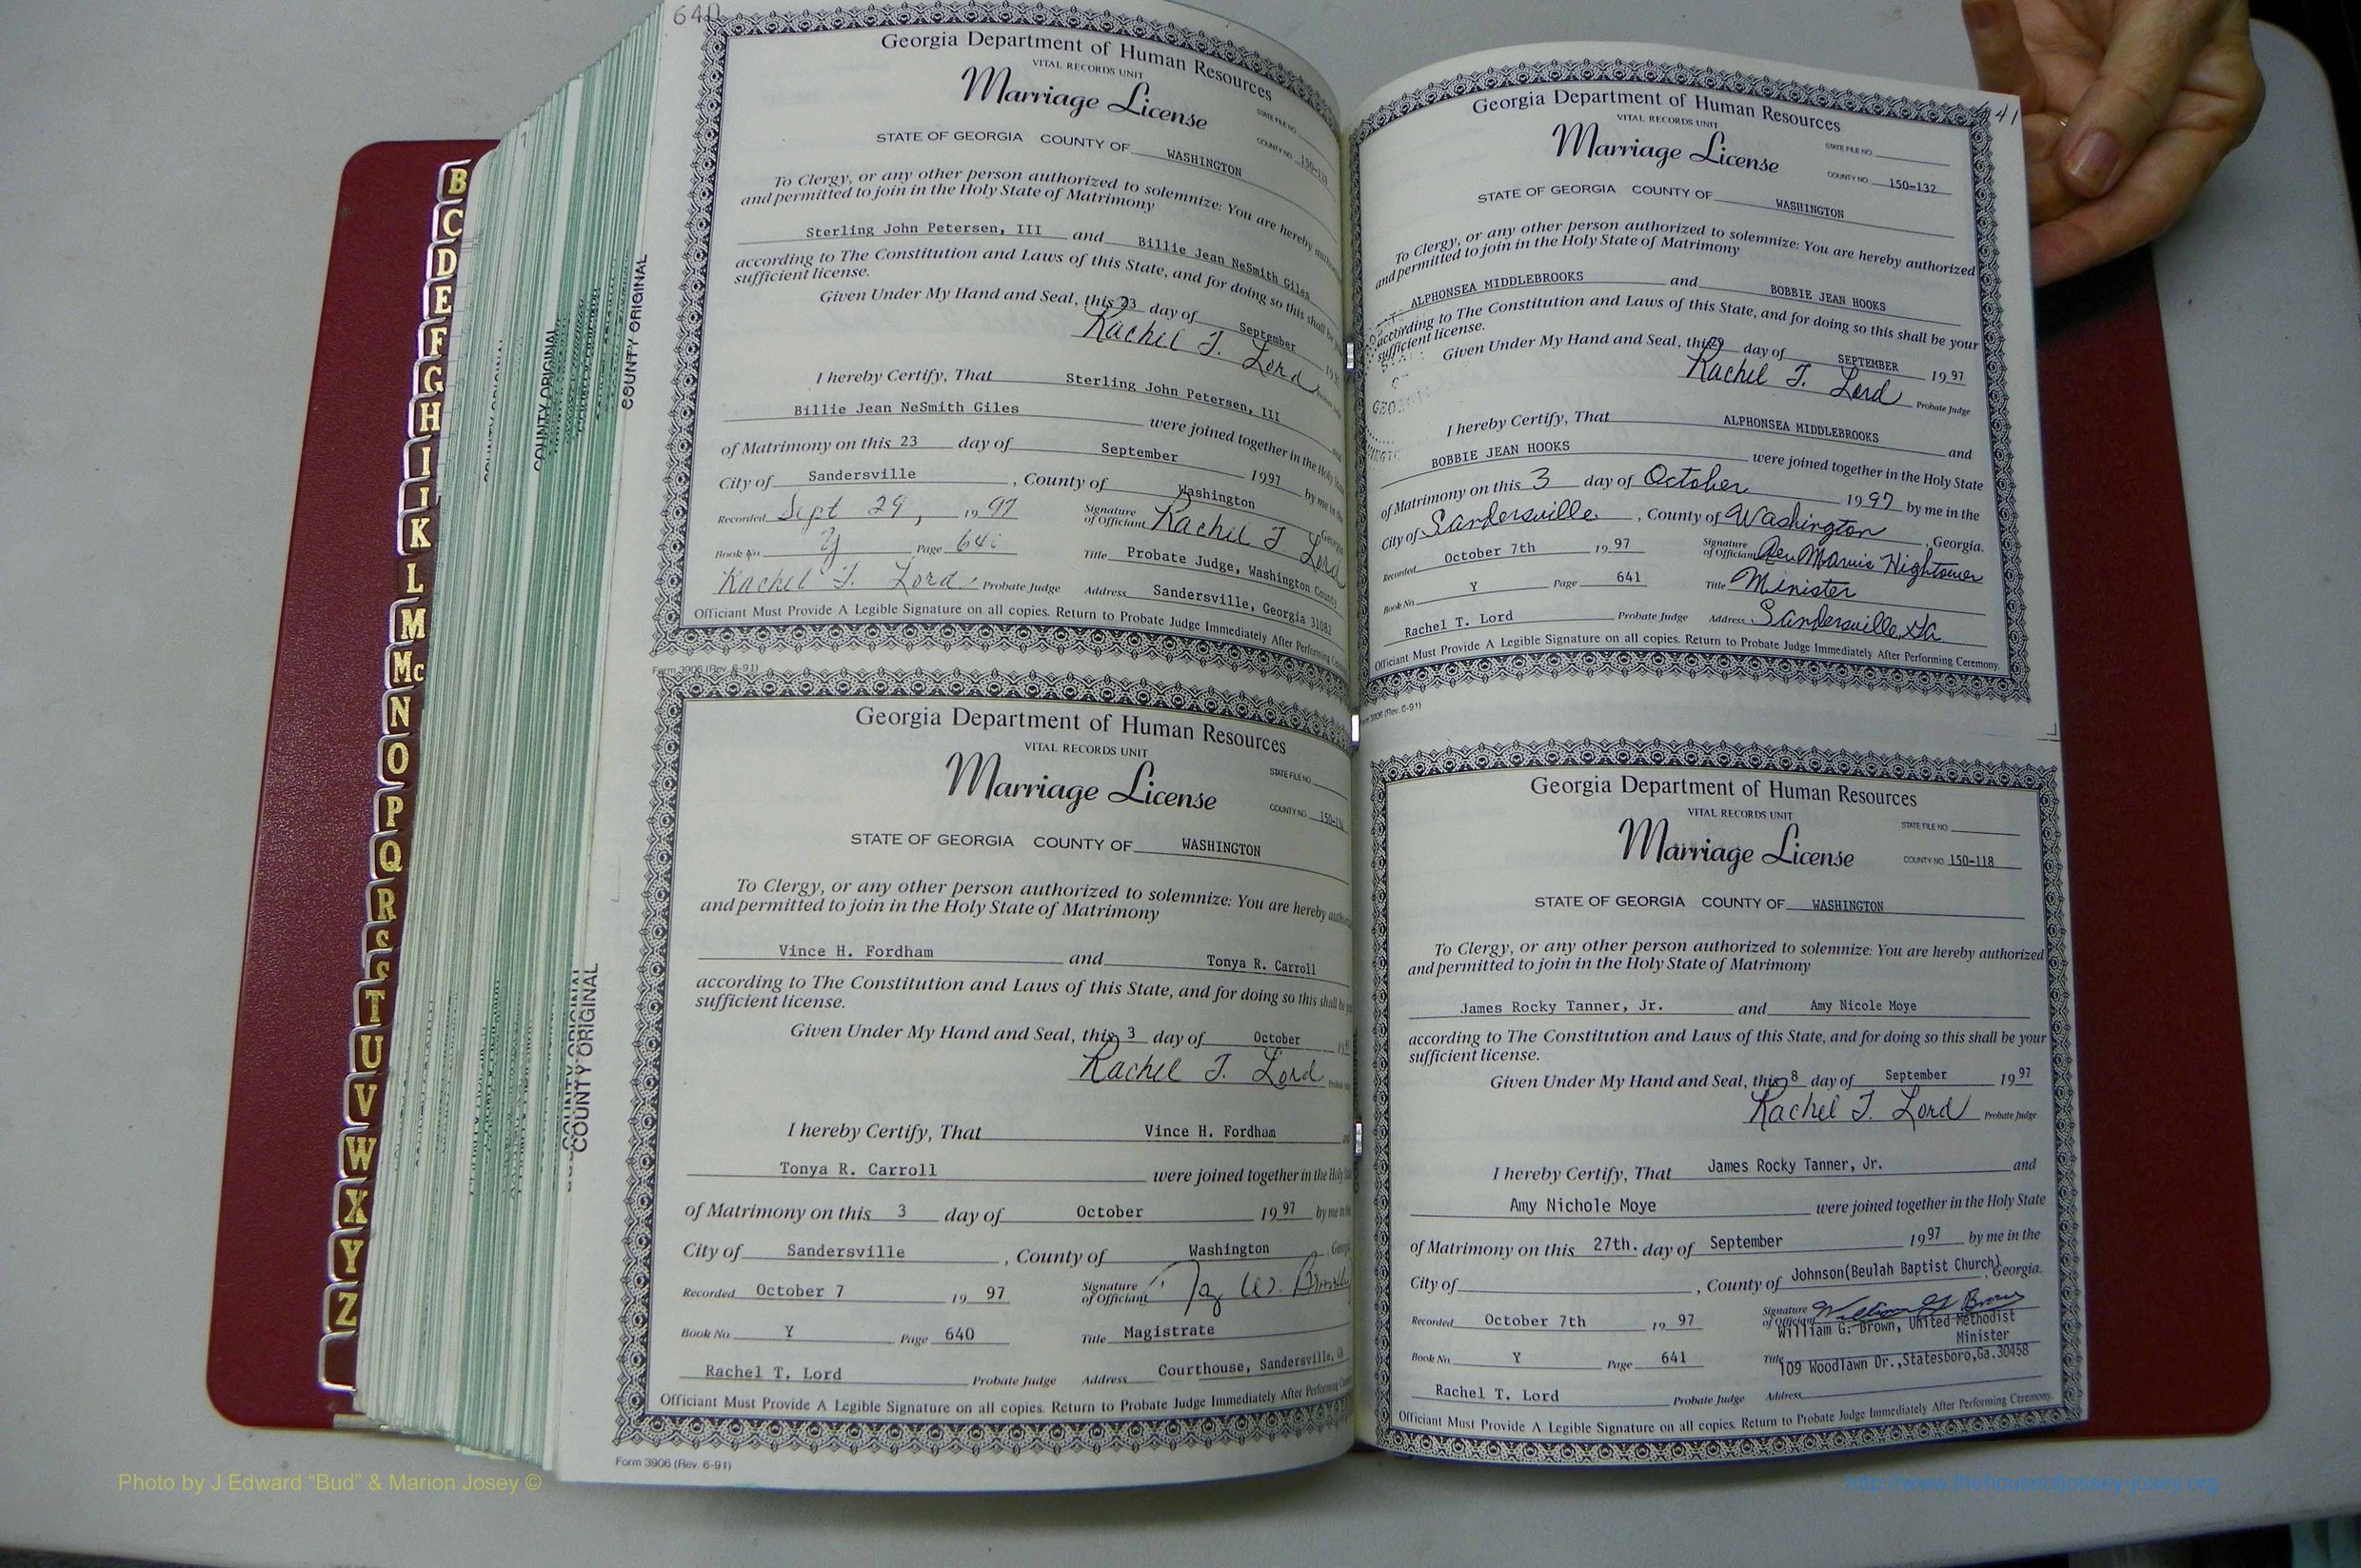 B
C
D
E
F
G
H
I
J
K
L
M
Mc
N
O
P
Q
R
S
T
U
V
W
X
Y
Z
COUNTY ORIGINAL
COUNTY ORIGINAL
COUNTY ORIGINAL
640
Georgia Department of Human Resources
VITAL RECORDS UNIT
Marriage License
STATE FILE NO.
COUNTY NO.
STATE OF GEORGIA COUNTY OF WASHINGTON
To Clergy, or any other person authorized to solemnize: You are hereby
and permitted to join in the Holy State of Matrimony
Sterling John Petersen, III and Billie Jean NeSmith Giles
according to The Constitution and Laws of this State, and for doing so this shall be
sufficient license.
Given Under My Hand and Seal, this 23 day of September
Rachel T. Lord
I hereby Certify, That Sterling John Petersen, III and
Billie Jean NeSmith Giles were joined together in the Holy State
of Matrimony on this 23 day of September 1997 by me in the
City of Sandersville, County of Washington Georgia
Recorded Sept 29, 1997 Signature of Officiant Rachel T. Lord
Book No. Y Page 640 Title Probate Judge, Washington County
Rachel T. Lord Probate Judge Address Sandersville, Georgia 31082
Officiant Must Provide A Legible Signature on all copies. Return to Probate Judge Immediately After Performing
Form 3906 (Rev. 6-91)
Georgia Department of Human Resources
VITAL RECORDS UNIT
Marriage License
STATE FILE NO.
COUNTY NO.
STATE OF GEORGIA COUNTY OF WASHINGTON
To Clergy, or any other person authorized to solemnize: You are hereby
and permitted to join in the Holy State of Matrimony
Vince H. Fordham and Tonya R. Carroll
according to The Constitution and Laws of this State, and for doing so this shall be
sufficient license.
Given Under My Hand and Seal, this 3 day of October
Rachel T. Lord
I hereby Certify, That Vince H. Fordham
Tonya R. Carroll were joined together in the Holy
of Matrimony on this 3 day of October 1997 by me in the
City of Sandersville, County of Washington
Recorded October 7 19 97 Signature of Officiant
Book No. Y Page 640 Title Magistrate
Rachel T. Lord Probate Judge Address Courthouse, Sandersville,
Officiant Must Provide A Legible Signature on all copies. Return to Probate Judge Immediately After Performing
Form 3906 (Rev. 6-91)
641
Georgia Department of Human Resources
VITAL RECORDS UNIT
Marriage License
STATE FILE NO.
COUNTY NO. 150-132
STATE OF GEORGIA COUNTY OF WASHINGTON
To Clergy, or any other person authorized to solemnize: You are hereby authorized
and permitted to join in the Holy State of Matrimony
ALPHONSEA MIDDLEBROOKS and BOBBIE JEAN HOOKS
according to The Constitution and Laws of this State, and for doing so this shall be your
sufficient license.
Given Under My Hand and Seal, this 29 day of SEPTEMBER 1997
Rachel T. Lord Probate Judge
I hereby Certify, That ALPHONSEA MIDDLEBROOKS and
BOBBIE JEAN HOOKS were joined together in the Holy State
of Matrimony on this 3 day of October 1997 by me in the
City of Sandersville, County of Washington, Georgia.
Recorded October 7th 1997 Signature of Officiant Rev Mamie Hightower
Book No. Y Page 641 Title Minister
Rachel T. Lord Probate Judge Address Sandersville, Ga
Officiant Must Provide A Legible Signature on all copies. Return to Probate Judge Immediately After Performing Ceremony.
Form 3906 (Rev. 6-91)
Georgia Department of Human Resources
VITAL RECORDS UNIT
Marriage License
STATE FILE NO.
COUNTY NO. 150-118
STATE OF GEORGIA COUNTY OF WASHINGTON
To Clergy, or any other person authorized to solemnize: You are hereby authorized
and permitted to join in the Holy State of Matrimony
James Rocky Tanner, Jr. and Amy Nicole Moye
according to The Constitution and Laws of this State, and for doing so this shall be your
sufficient license.
Given Under My Hand and Seal, this 8 day of September 1997
Rachel T. Lord Probate Judge
I hereby Certify, That James Rocky Tanner, Jr. and
Amy Nichole Moye were joined together in the Holy State
of Matrimony on this 27th. day of September 1997 by me in the
City of , County of Johnson(Beulah Baptist Church), Georgia.
Recorded October 7th 19 97 Signature of Officiant William G. Brown
William G. Brown, United Methodist
Minister
Book No. Y Page 641 Title 109 Woodlawn Dr.,Statesboro,Ga.30458
Rachel T. Lord Probate Judge Address
Officiant Must Provide A Legible Signature on all copies. Return to Probate Judge Immediately After Performing Ceremony.
Photo by J Edward “Bud” & Marion Josey ©
http://www.thehouseofjossey-josey.org